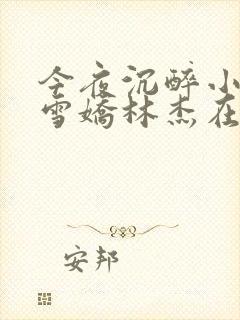 今夜沉醉小
雪嬌林杰在
安邦